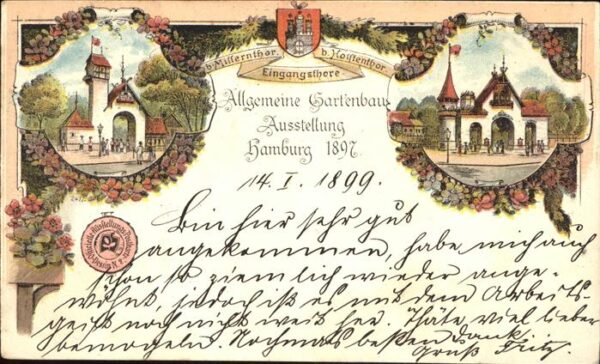 b. Millernthor.
b. Holstenthor.
Eingangsthore
Allgemeine Gartenbau
Ausstellung
Hamburg 1897.
14. I. 1899.
Bin hier sehr gut
angekommen, habe mich auch
schon so ziemlich wieder ange-
wöhnt, jedoch ist es mit dem Arbeits-
geist noch nicht weit her. Thäte viel lieber
bemogeln. Nochmals besten Dank.
Gruß Fritz